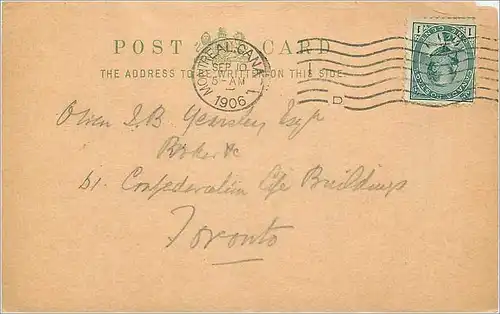 POST CARD
THE ADDRESS TO BE WRITTEN ON THIS SIDE
MONTREAL. CANADA
SEP 10
5-AM
1906
1
D
1 1
B. Yearsley Esqr
61. Confederation Life Buildings
Toronto